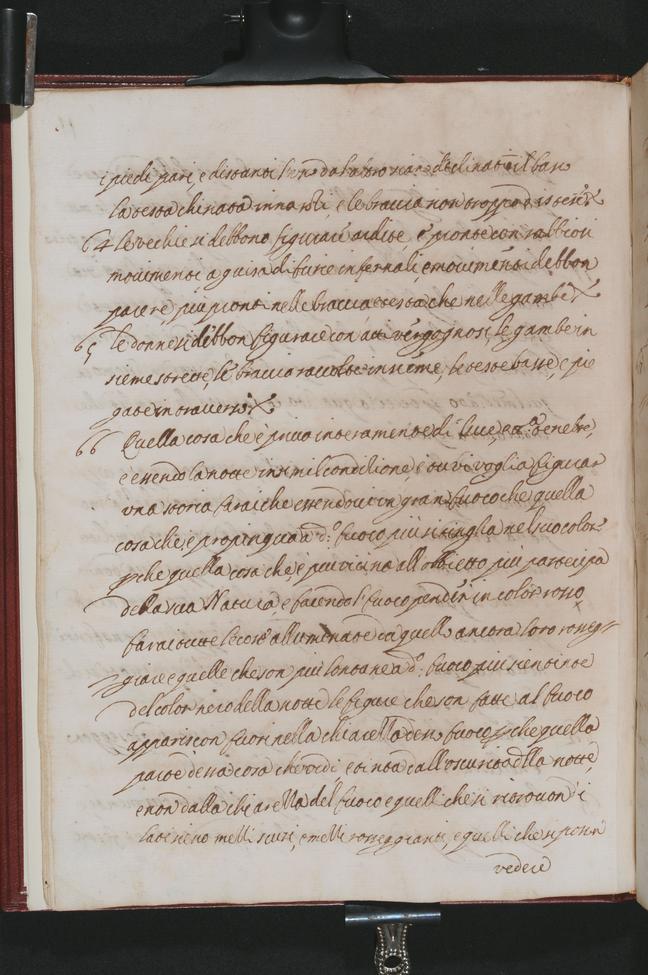 i piedi pari, e distanti l'un da l'altro
la testa chinata innanti, e le braccia non troppo distese
64 Le vecchie si debbono figurare ardite, e pronte con rabbiosi
movimenti a guisa di furie infernali, e movimenti debbon
parere più pronti nelle braccia e testa che nelle gambe
65 Le donne si debbon figurare con atti vergognosi, le gambe in
sieme strette, le braccia raccolte insieme, le teste basse, e pie
gate in traverso
66 Quella cosa che è priva interamente di luce, è tenebre,
e essendo la notte in simil conditione, e tu vi voglia figurar
una storia farai che essendovi un gran fuoco che quella
cosa che è propinqua a d.º fuoco più si tinglia nel suo colore
perche quella cosa che è più vicina all'obbietto più partecipa
della sua Natura, e facendo il fuoco pendere in color rosso
farai tutte le cose alluminate da quello ancora loro rosseg-
giare e quelle che son più lontane a d.º fuoco più sien tinte
del color nero della notte le figure che son fatte al fuoco
appariscon scuri nella chiarezza desso fuoco perche quella
parte dessa cosa che vedi è tinta dall'oscurità della notte
e non dalla chiarezza del fuoco e quelli che si ritrovono i
lati sieno mezzi scuri, e mezzi rosseggianti, e quelli che si posson
vedere